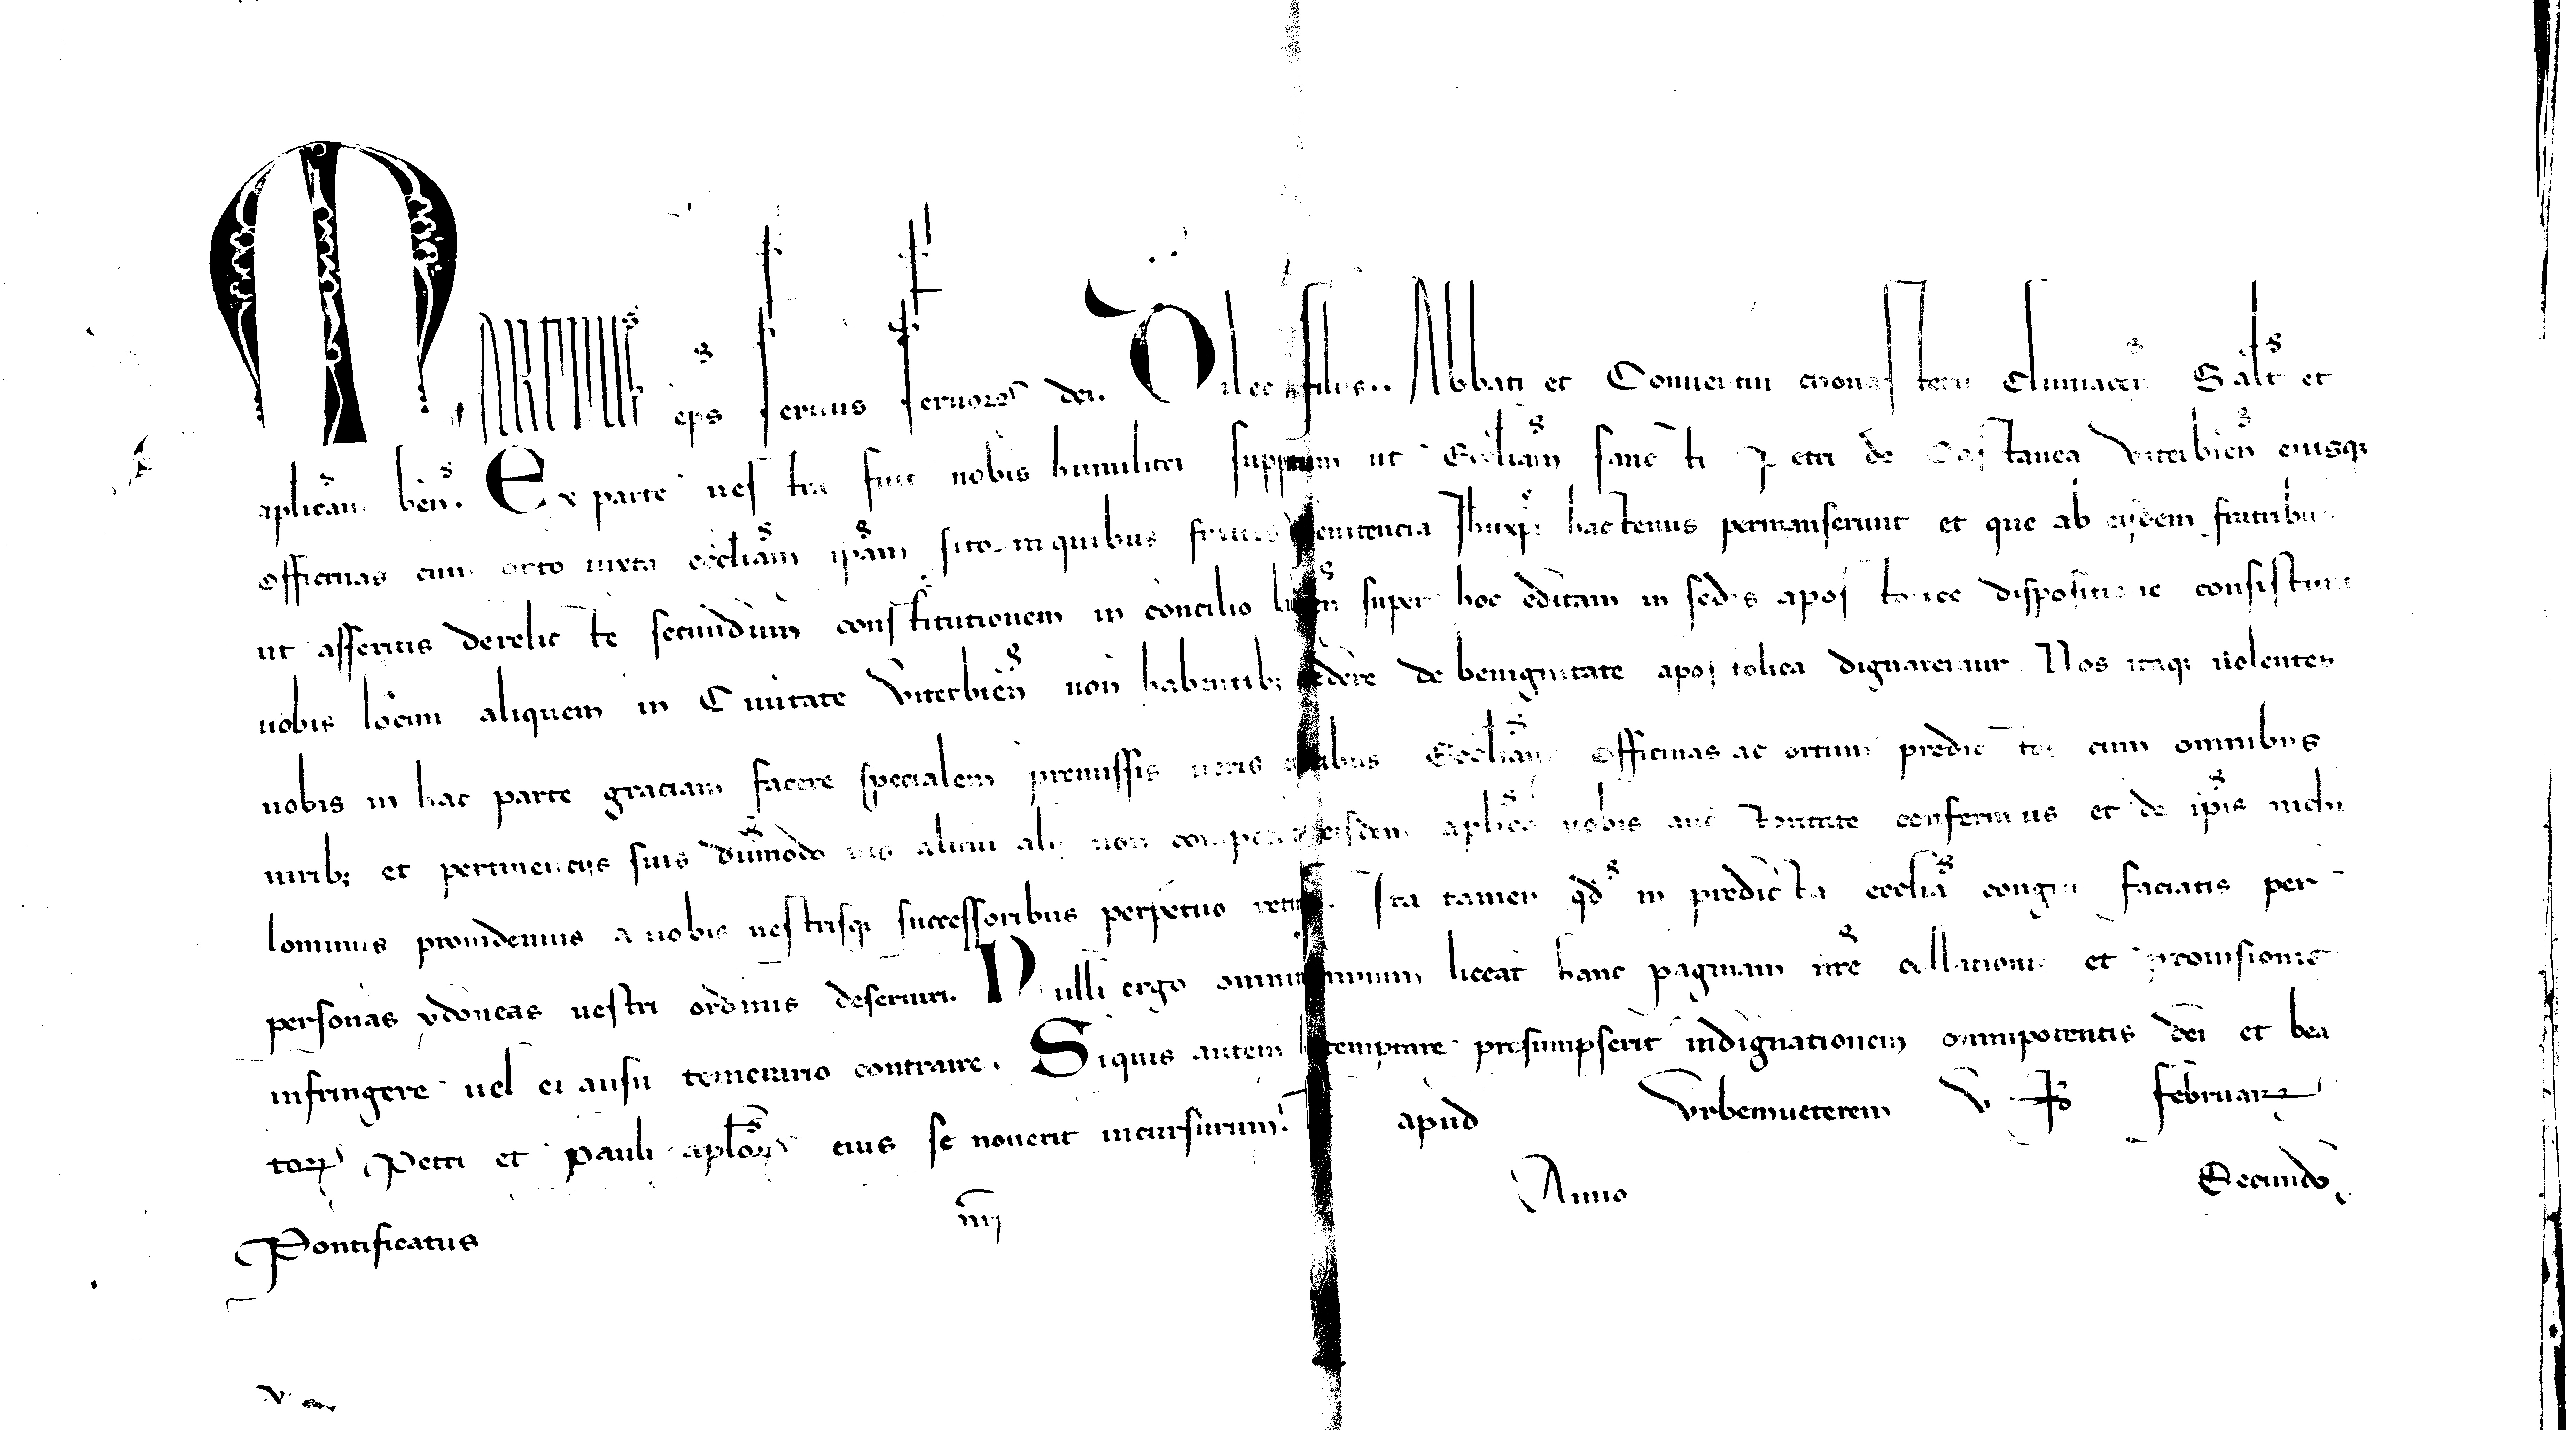 MARTINUS eps seruus seruoꝝ dei. Dilec filiis.. Abbati et Conuentui monasterii Cluniacen̄ Sal̄t et
aplicam ben̄. Ex parte uestra fuit nobis humiliter supplicatum ut Eccliam sancti Petri de Castanea Viterbien̄ eiusqꝫ
officinas cum orto iuxta eccliam ipam sito in quibus fratres penitencia Ihuxpi hactenus permanserunt et que ab eisdem fratribus
ut asseritis derelicte secundum constitutionem in concilio lugdun̄ super hoc editam in sedis apostolice dispositione consistunt
uobis locum aliquem in Ciuitate Viterbien̄ non habentibꝫ concedere de benignitate apostolica dignaremur. Nos itaqꝫ uolentes
uobis in hac parte graciam facere specialem premissis uestris Eccliam officinas ac ortum predictos cum omnibus
iuribꝫ et pertinencijs suis dummodo ius alicui alij non competat eisdem aplica uobis auctoritate conferimus et de ipis nichi
lominus prouidemus a uobis uestrisqꝫ successoribus perpetuo Ita tamen qd in predicta ecclia congrue faciatis per
personas ydoneas uestri ordinis deseruiri. Nulli ergo omnino hominum liceat hanc paginam nre collationis et prouisionis
infringere uel ei ausu temerario contraire. Siquis autem attemptare presumpserit indignationem omnipotentis dei et bea
toꝝ Petri et Pauli aploꝝ eius se nouerit incursurum. apud Vrbemueterem V kl februarꝝ
Pontificatus nri Anno Secundo.